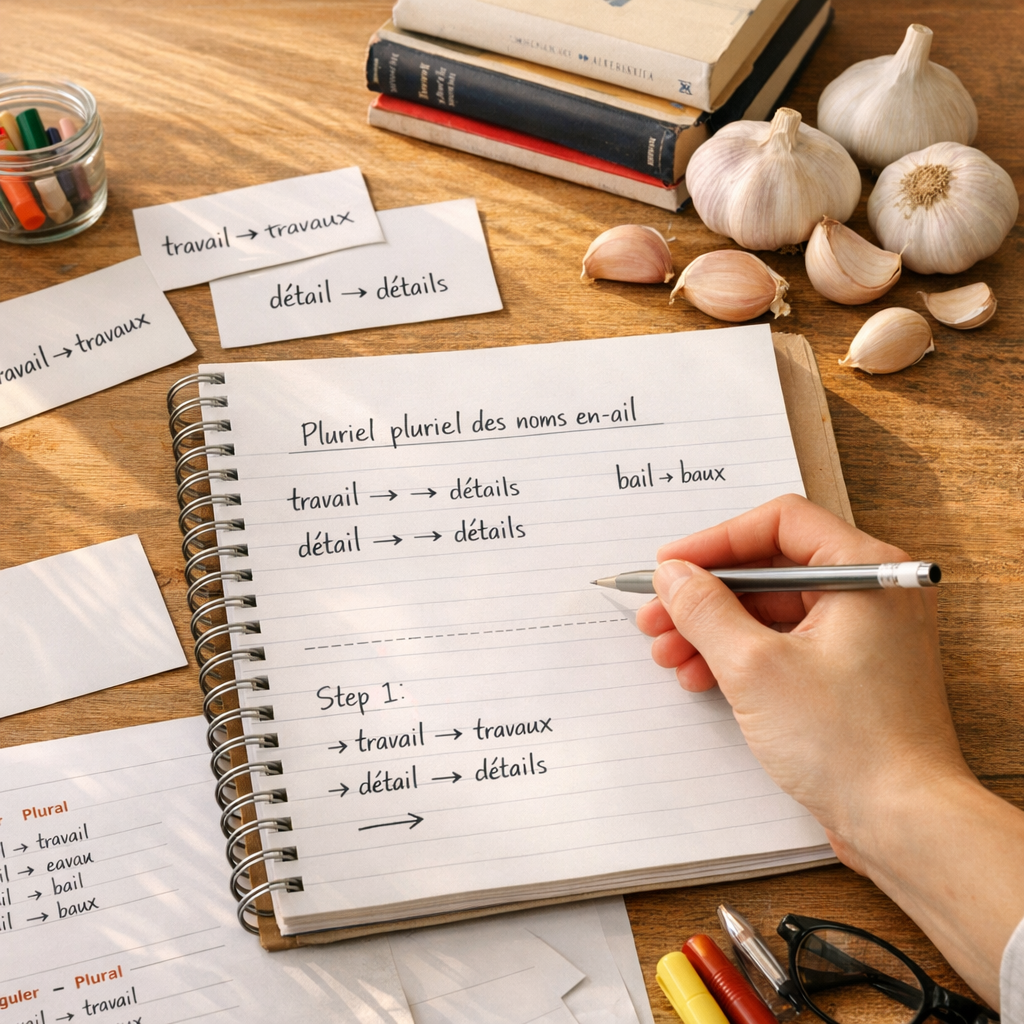 travail → travaux
détail → détails
→ travaux
Pluriel pluriel des noms en-ail
travail → → détails
bail → baux
détail → → détails
Step 1:
→ travail → travaux
→ détail → détails
→
Plural
→ travail
→ eavau
→ bail
→ baux
– Plural
→ travail